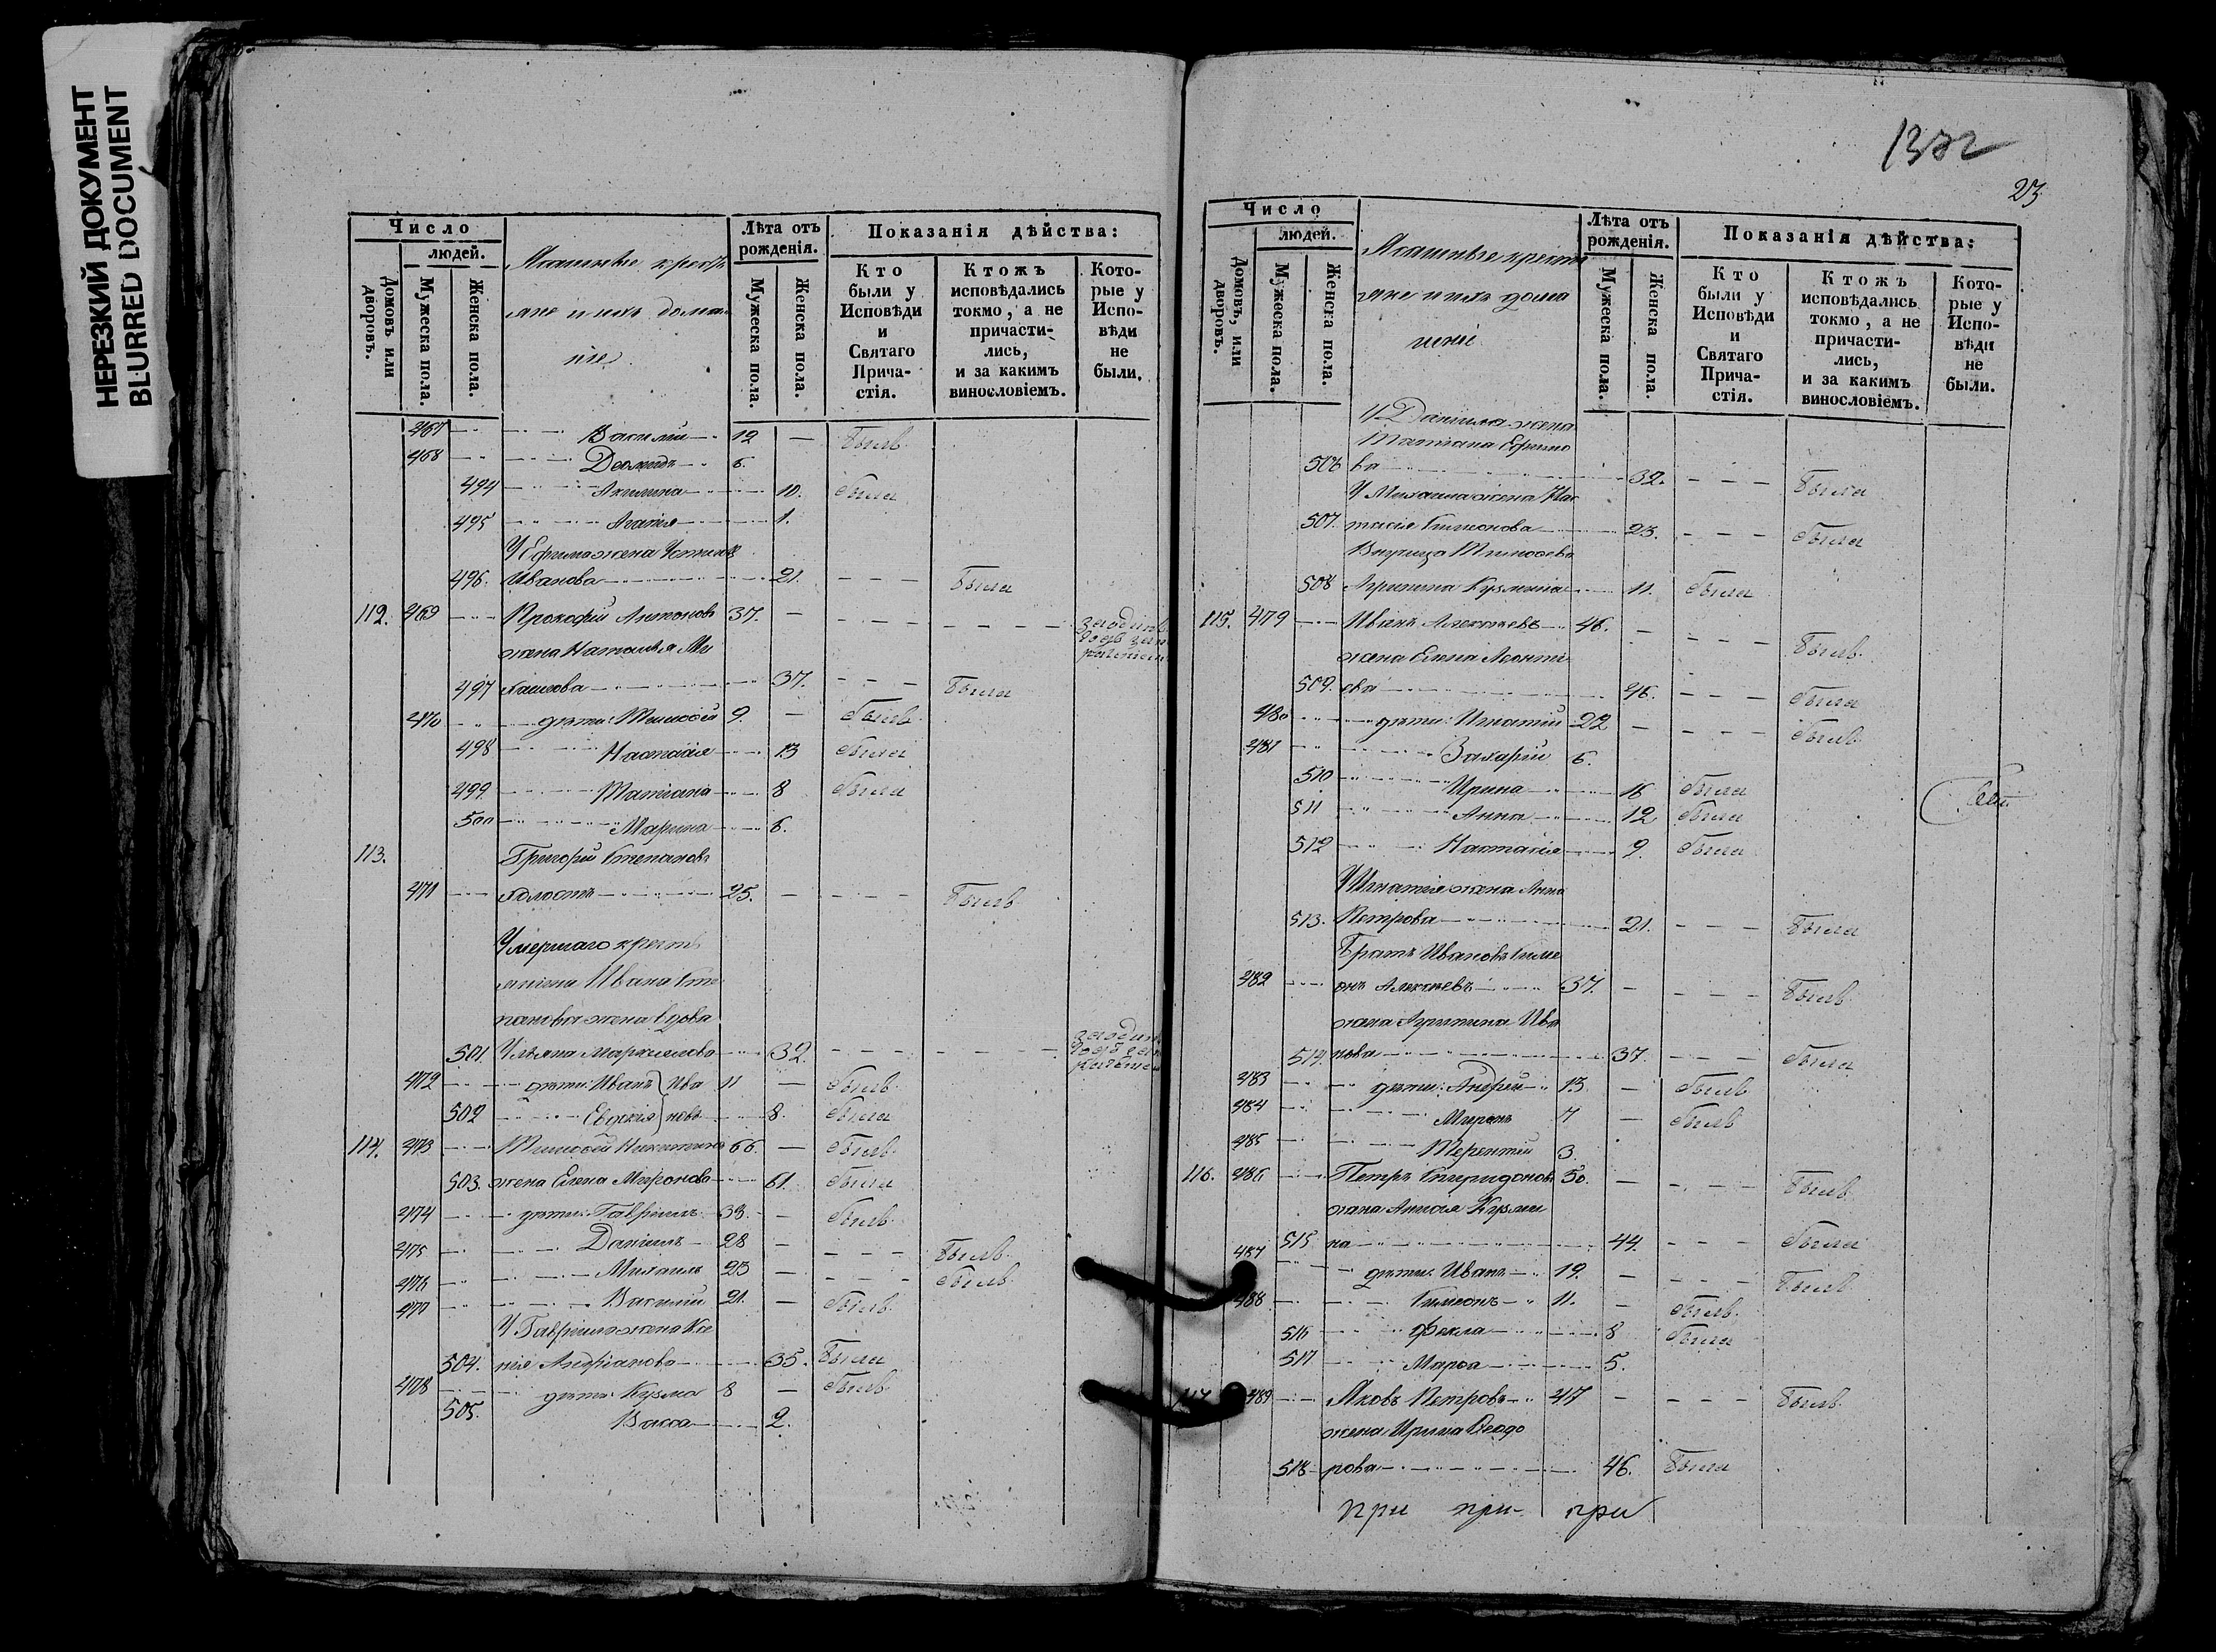 НЕРЕЗКИЙ ДОКУМЕНТ
BLURRED DOCUMENT
Число
людей.
Домовъ или дворовъ.
Мужеска пола.
Женска пола.
яне и ихъ домаш
ніе.
Лѣта отъ рожденія.
Мужеска пола.
Женска пола.
Показанія дѣйства:
Кто были у Исповѣди и Святаго Прича-стія.
Ктожъ исповѣдались токмо, а не причасти-лись, и за какимъ винословіемъ.
Кото-рые у Испо-вѣди не были.
467 Василій 12 — былъ
468 Деомидъ 6.
494 Акилина 10. была
495 Агаѳія 1.
У Ефима жена Устинья
496. Иванова 21. была
112. 469 Прокофій Антоновъ 37.
жена Наталья Ми
497 хаилова 37. была
470 дѣти: Тимоѳей 9. — былъ
498 Настасія 13 была
499 Татіана 8 была
500 Марина 6.
113. Григорій Степановъ
471 холостъ 25. — былъ
Умершаго кресть
янина Ивана Сте
панова жена вдова
501. Ульяна Маркелова 32.
472 дѣти: Иванъ } Ива 11 — былъ
502 Евдокія } новы 8. была
114. 473 Тимоѳей Никитинъ 66. — былъ
503. жена Елена Миронова 61. была
474 дѣти: Гавріилъ 38. — былъ
475 Даніилъ 28 — былъ
476 Михаилъ 23 — былъ
477 Василій 21. — былъ
У Гавріила жена Ксе
504. нія Андріанова 35. была
478 дѣти: Кузма 8 — былъ
505. Васса 2.
1372
23
Число
людей.
Домовъ, или дворовъ.
Мужеска пола.
Женска пола.
яне и ихъ дома
шніе.
Лѣта отъ рожденія.
Мужеска пола.
Женска пола.
Показанія дѣйства:
Кто были у Исповѣди и Святаго Прича-стія.
Ктожъ исповѣдались токмо, а не причасти-лись, и за какимъ винословіемъ.
Кото-рые у Испо-вѣди не были.
У Даніила жена
Татіана Ефимо
506 ва 32. была
У Михаила жена Нас
507. тасія Симеонова 23. была
Внучица Тимоѳева
508 Агрипина Кузмина 11. была
115. 479 Иванъ Алексѣевъ 46. — былъ
жена Елена Леонтіе
509. ева 46. была
480 дѣти: Игнатій 22 — былъ
481 Захарій 6.
510 Ирина 16 была
511 Анна 12 была
512 Настасія 9. была
У Игнатія жена Анна
513. Петрова 21. была
Братъ Ивановъ Симе
482 онъ Алексѣевъ 37. — былъ
жена Агрипина Ива
514. нова 37. была
483 дѣти: Андрей 13. — былъ
484 Миронъ 7 — былъ
485 Терентій 3.
116. 486 Петръ Спиридоновъ 50. — былъ
жена Анисія Кузми
515 на 44. была
487 дѣти: Иванъ 19. — былъ
488 Симеонъ 11. — былъ
516 Фекла 8 была
517 Марѳа 5.
117 489 Яковъ Петровъ 47 — былъ
жена Ирина Ѳеодо
518 рова 46. была
при при при